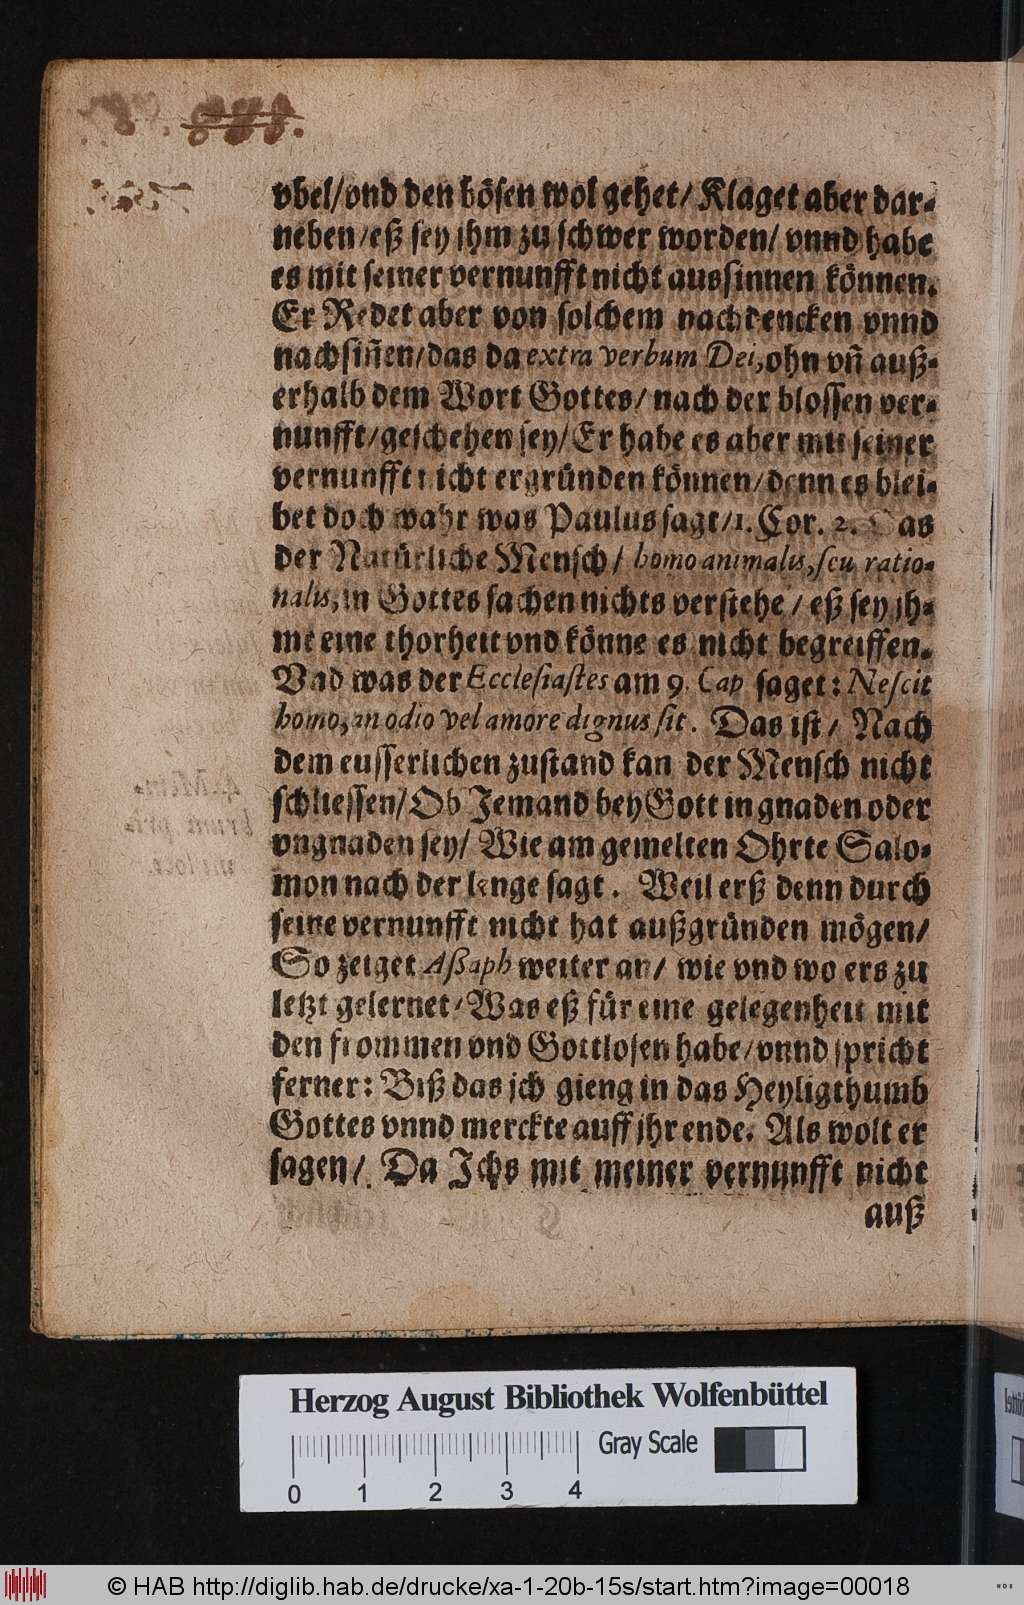 vbel/vnd den bösen wol gehet/ Klaget aber dar-
neben/eß sey jhm zu schwer worden/ vnnd habe
es mit seiner vernunfft nicht aussinnen können.
Er Redet aber von solchem nachdencken vnnd
nachsiñen/das da extra verbum Dei, ohn vñ auß-
erhalb dem Wort Gottes/ nach der blossen ver-
nunfft/geschehen sey/ Er habe es aber mit seiner
vernunfft nicht ergründen können/denn es blei-
bet doch wahr was Paulus sagt/1. Cor. 2. Das
der Natürliche Mensch/ homo animalis, seu ratio-
nalis, in Gottes sachen nichts verstehe/ eß sey jh-
me eine thorheit vnd könne es nicht begreiffen.
Vnd was der Ecclesiastes am 9. Cap saget: Nescit
homo, an odio vel amore dignus sit. Das ist/ Nach
dem eusserlichen zustand kan der Mensch nicht
schliessen/Ob Jemand bey Gott in gnaden oder
vngnaden sey/ Wie am gemelten Ohrte Salo-
mon nach der lenge sagt. Weil erß denn durch
seine vernunfft nicht hat außgründen mögen/
So zeiget Aßaph weiter an/ wie vnd wo ers zu
letzt gelernet/Was eß für eine gelegenheit mit
den frommen vnd Gottlosen habe/vnnd spricht
ferner: Biß das jch gieng in das Heyligthumb
Gottes vnnd merckte auff jhr ende. Als wolt er
sagen/. Da Ichs mit meiner vernunfft nicht
auß
Herzog August Bibliothek Wolfenbüttel
Gray Scale
0 1 2 3 4
© HAB http://diglib.hab.de/drucke/xa-1-20b-15s/start.htm?image=00018